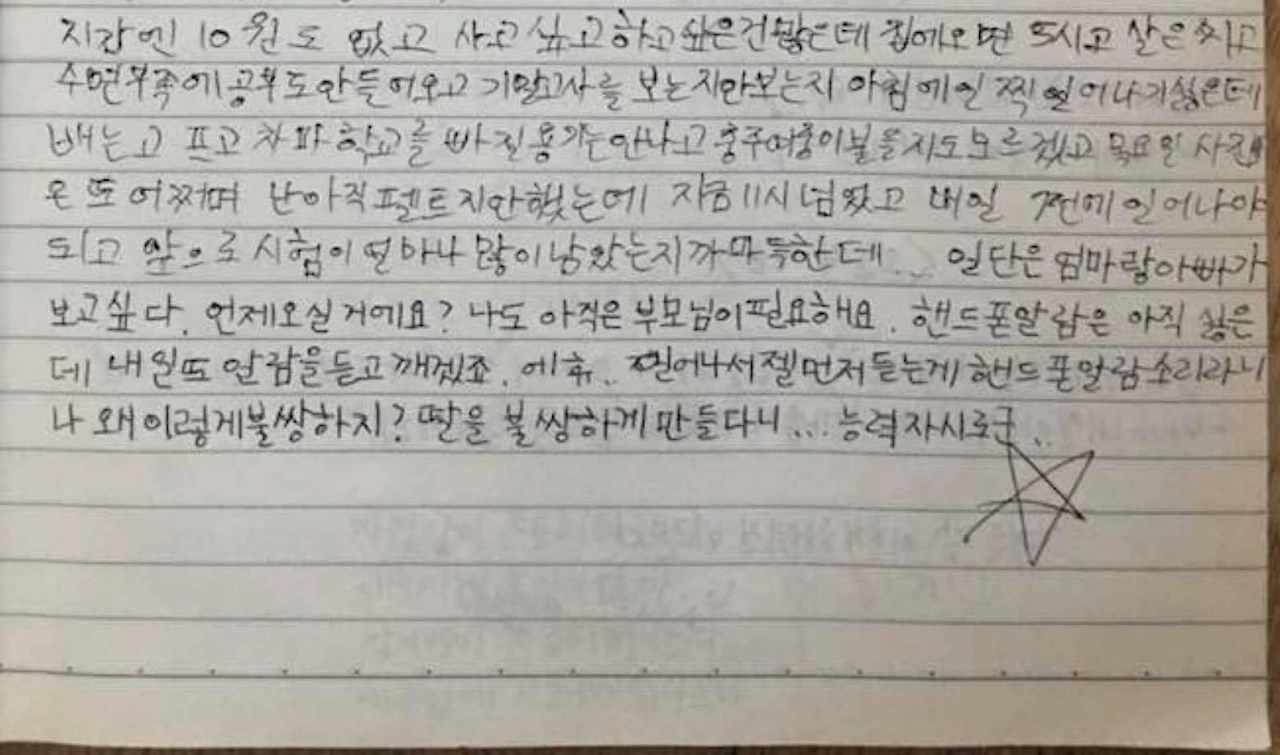 지갑엔 10원도 없고 사고싶고하고싶은건많은데 집에오면 5시고 살은찌고
수면부족에공부도안들어오고 기말고사를 보는지안보는지 아침에일찍일어나기싫은데
배는고프고 차마학교를 빠질용기는안나고 충주여중이붙을지도모르겠고 목요일 사진
은또어쩌며 난아직펠트지안했는데 지금11시넘었고 내일 7전에일어나야
되고 앞으로시험이얼마나많이남았는지까마득한데... 일단은엄마랑아빠가
보고싶다. 언제오실거에요? 나도 아직은부모님이필요해요. 핸드폰알람은 아직 싫은
데 내일또알람을듣고깨겠죠. 에휴.. 일어나서젤먼저듣는게핸드폰알람소리라니
나왜이렇게불쌍하지? 딸을 불쌍하게만들다니... 능력자시로군..